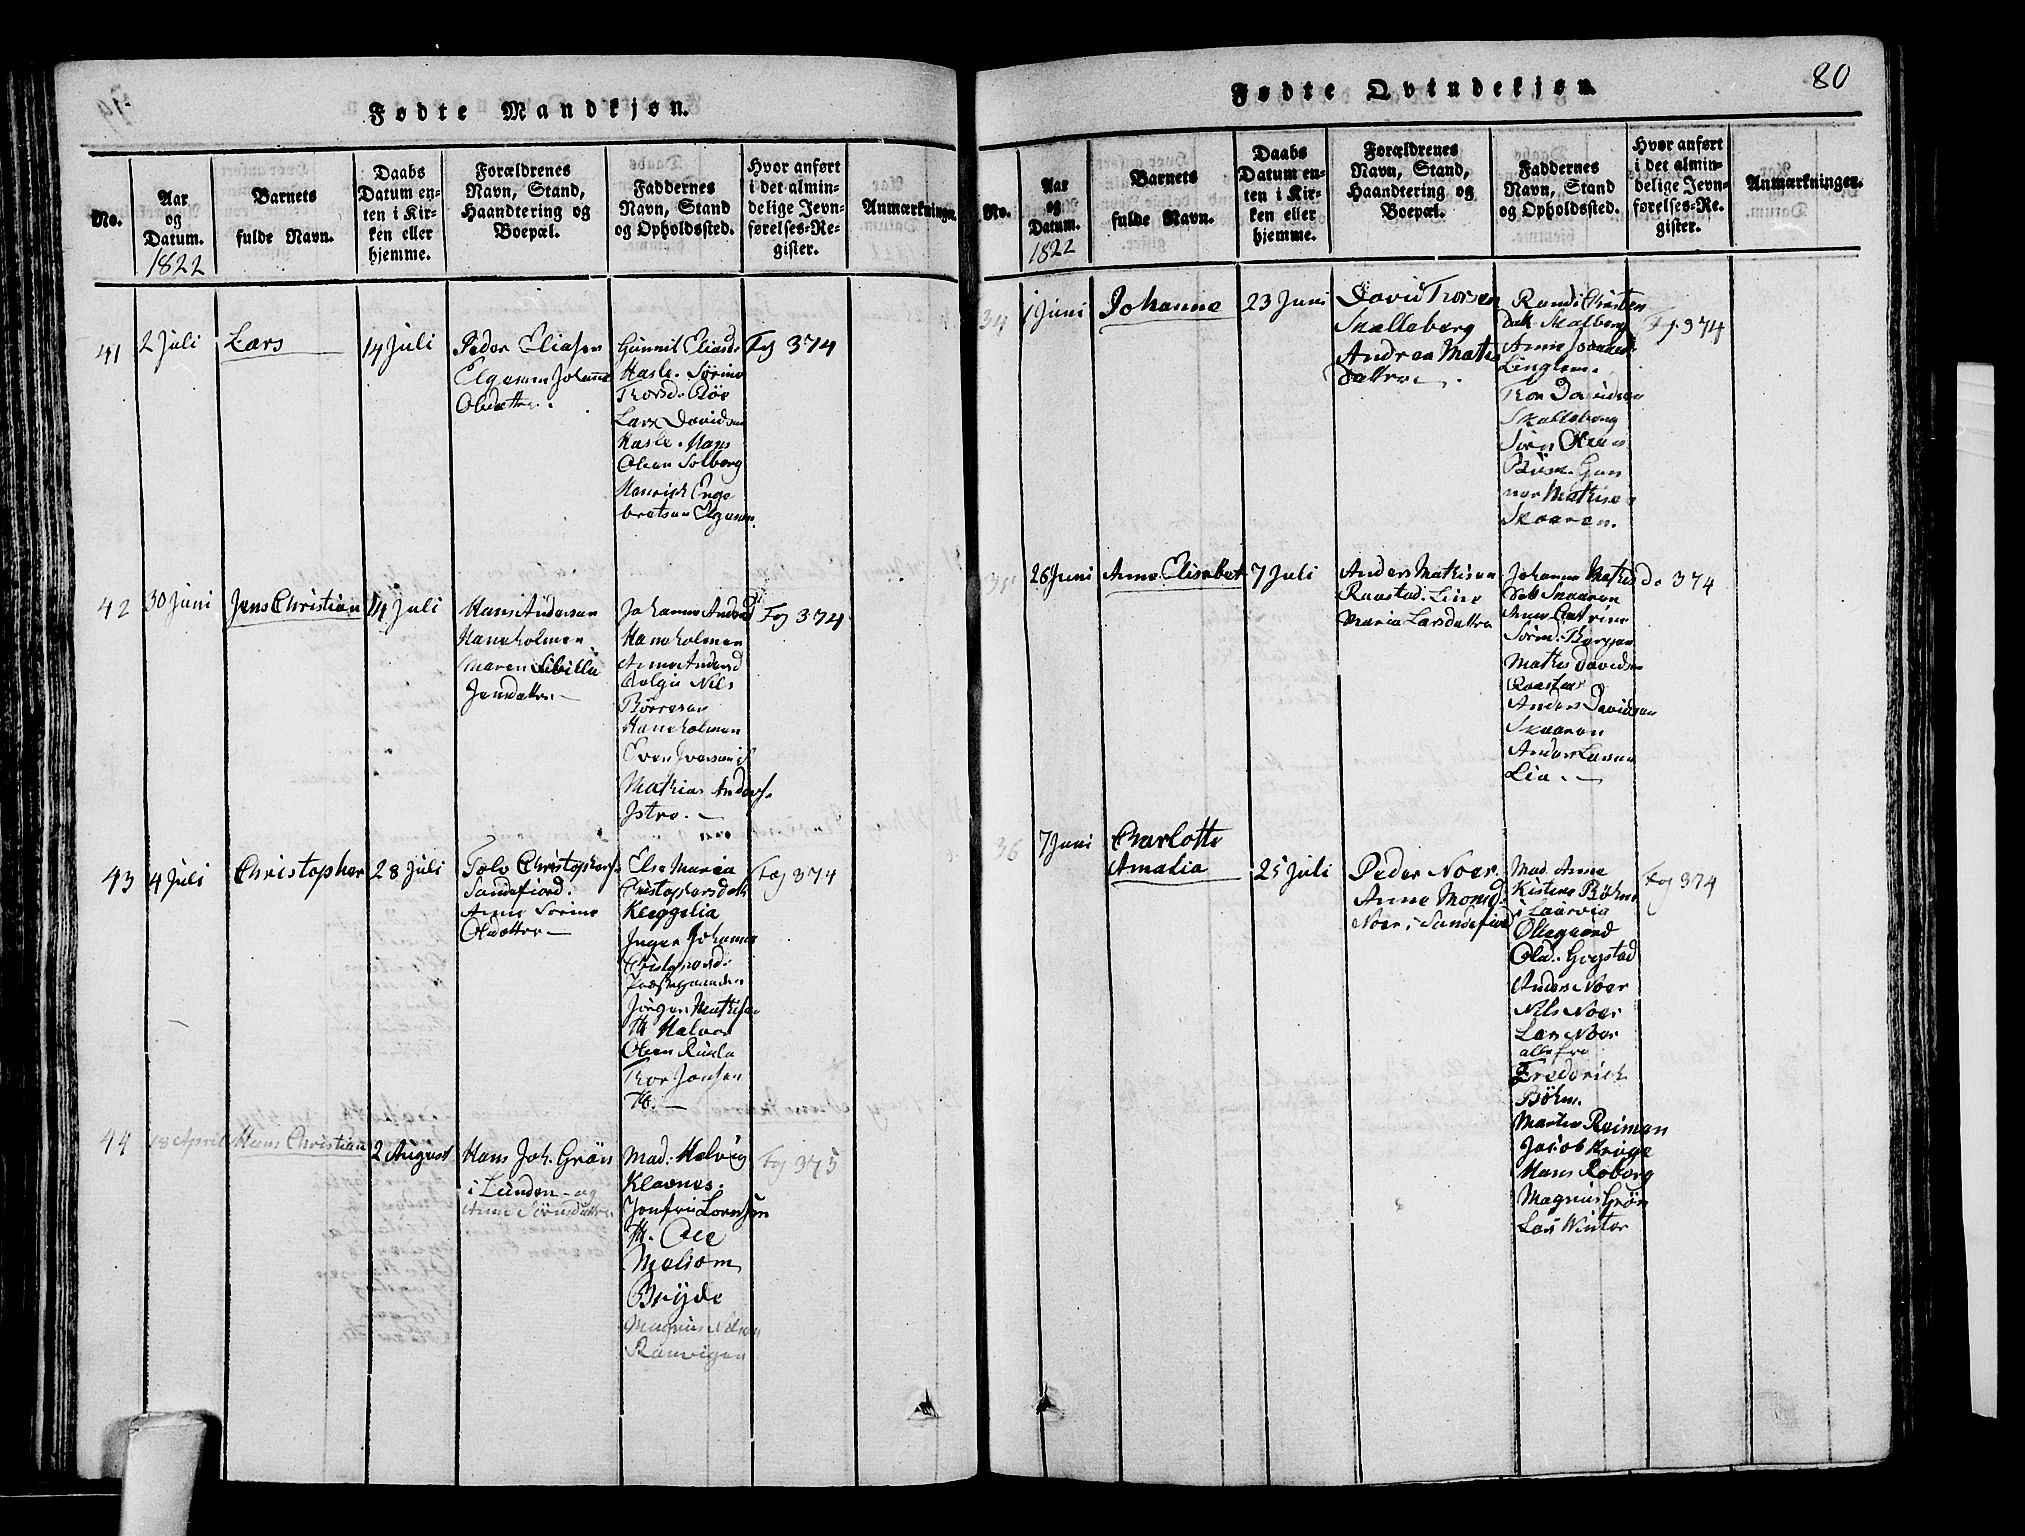 Fødte Mandkjøn.
No.
Aar
og
Datum.
1822
Barnets
fulde Navn.
Daabs
Datum en-
ten i Kir-
ken eller
hjemme.
Forældrenes
Navn, Stand,
Haandtering og
Boepæl.
Faddernes
Navn, Stand
og Opholdssted.
Hvor anført
i det almin-
delige Jevn-
førelses-Re-
gister.
Anmærkninger.
41
2 Juli
Lars
14 Juli
Peder Eliasen
Elgesem Johanne
Olsdatter.
Gunnil Eliasd:
Hasle. Sørine
Thorsd.
Lars Davidsen
Hasle. Hans
Olsen Solberg
Henrich Enge
bretsen Elgesem
Fg 374
42
30 Juni
Jens Christian
14 Juli
Hans Andersen
Haneholmen
Maren Sibilla
Jensdatter
Johanne Andersd
Haneholmen
Anne Andersd
Nils
Børresen
Haneholmen
Even Iversen
Mathias Anders.
Istre.
Fg 374
43
4 Juli
Christopher
28 Juli
Tolv Christophers
Sandefiord.
Anne Sørine
Olsdatter
Else Maria
Christophersdatt
Inger Johanne
Jørgen Mathisen
Th. Halvor
Olsen
Thor Jonsen
Th.
Fog 374
44
18 April
Hans Christian
2 August
Hans Joh. Grøn
i Lunden og
Anne Sørensdatter
Mad: Helvig
Klavnes.
Jomfru Lorensen
Th.
Melsom
Bryde
Magnus Nelsen
Ranvigen
Fg 375
Fødte Qvindekjøn.
80
No.
Aar
og
Datum.
1822
Barnets
fulde Navn.
Daabs
Datum en-
ten i Kir-
ken eller
hjemme.
Forældrenes
Navn, Stand,
Haandtering og
Boepæl.
Faddernes
Navn, Stand
og Opholdssted.
Hvor anført
i det almin-
delige Jevn-
førelses-Re-
gister.
Anmærkninger.
34
1 Juni
Johanne
23 Juni
David Thorsen
Skalleberg
Andrea Mathis
datter
Randi Christen
datt.
Anne
Lingelem.
Thor Davidsen
Skalleberg
Søren Olsen
Gun
ner Mathisen
Skaaren.
Fg. 374
35
26 Juni
Anne Elisabet
7 Juli
Anders Mathisen
Raastad. Line
Maria Larsdatter
Johanne Mathis
datt Skaaren
Anne Catrine
Sørend. Bergan
Mathis Davidsen
Raastad
Anders Davidsen
Skaaren
Anders Larsen
Lie.
Do 374
36
7 Juni
Charlotte
Amalia
25 Juli
Peder Noer.
Anne Monsd.
Noer i Sandefiord
Mad. Anne
Kistine Bøhme
i Laurvig
Ollegaard
Olsd. Gogstad
Anders Noer
Nils Noer
Lars Noer
alle fra
Frederich
Bøhm.
Marten Reiman
Jacob Krøge
Hans Roberg
Magnus Grøn
Lars Winter
Fg 374